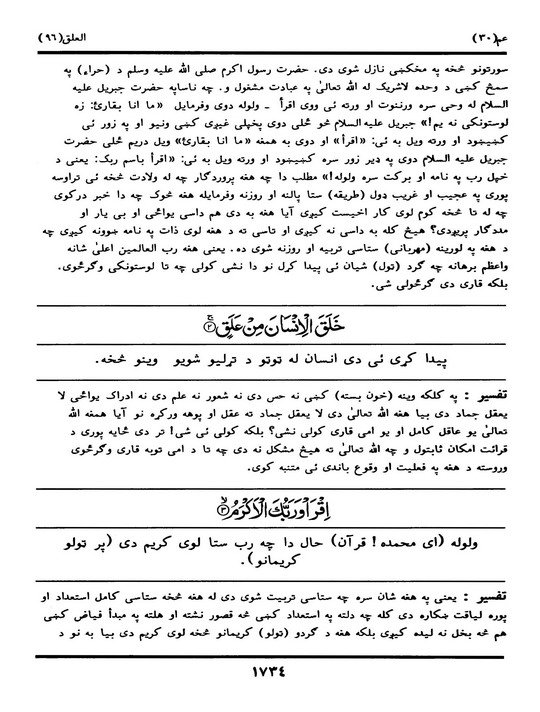 عم(٣٠)
العلق(٩٦)
سورتونو څخه په مخکښی نازل شوی دی. حضرت رسول اکرم صلی الله علیه وسلم د (حراء) په
سمڅ کښی د وحده لاشریک له الله تعالیٰ په عبادت مشغول و. چه ناساپه حضرت جبریل علیه
السلام له وحی سره ورننوت او ورته ئی ووی اقرأ ـ ولوله دوی وفرمایل «ما انا بقارئ: زه
لوستونکی نه یم!» جبریل علیه السلام څو ځلی دوی پخپلی غیږی کښی ونیو او په زور ئی
کښیښود او ورته ویل به ئی: «اقرأ» او دوی به همغه «ما انا بقارئ» ویل دریم ځلی حضرت
جبریل علیه السلام دوی په ډیر زور سره کښیښود او ورته ویل به ئی: «اقرأ باسم ربک: یعنی د
خپل رب په نامه او برکت سره ولوله!» مطلب دا چه هغه پروردگار چه له ولادت څخه ئی تراوسه
پوری په عجیب او غریب ډول (طریقه) ستا پالنه او روزنه وفرمایله هغه څوک چه دا خبر درکوی
چه له تا څخه کوم لوی کار اخیست کیږی آیا هغه به دی هم داسی یواځی او بی یار او
مددگار پریږدی؟ هیڅ کله به داسی نه کیږی او تاسی ته د هغه لوی ذات په نامه ښوونه کیږی چه
د هغه په لورینه (مهربانی) ستاسی تربیه او روزنه شوی ده. یعنی هغه رب العالمین اعلیٰ شانه
واعظم برهانه چه گرد (تول) شیان ئی پیدا کړل نو دا نشی کولی چه تا لوستونکی وگرځوی.
بلکه قاری دی گرځولی شی.
خَلَقَ الْاِنْسَانَ مِنْ عَلَقٍ ۚ﴿٢﴾
پیدا کړی ئی دی انسان له توتو د تړلیو شویو وینو څخه.
تفسیر : په کلکه وینه (خون بسته) کښی نه حس دی نه شعور نه علم دی نه ادراک یواځی لا
یعقل جماد دی بیا هغه الله تعالیٰ دی لا یعقل جماد ته عقل او پوهه ورکړه نو آیا همغه الله
تعالیٰ یو عاقل کامل او یو امی قاری کولی نشی؟ بلکه کولی ئی شی! تر دی ځایه پوری د
قرائت امکان ثابتول و چه الله تعالیٰ ته هیڅ مشکل نه دی چه تا د امی توبه قاری وگرځوی
وروسته د هغه په فعلیت او وقوع باندی ئی متنبه کوی.
اِقْرَاْ وَرَبُّكَ الْاَكْرَمُ ۙ﴿٣﴾
ولوله (ای محمده! قرآن) حال دا چه رب ستا لوی کریم دی (پر تولو
کریمانو).
تفسیر : یعنی په هغه شان سره چه ستاسی تربیت شوی دی له هغه څخه ستاسی کامل استعداد او
پوره لیاقت ښکاره دی کله چه دلته په استعداد کښی څه قصور نشته او هلته په مبدأ فیاض کښی
هم څه بخل نه لیده کیږی بلکه هغه د گردو (تولو) کریمانو څخه لوی کریم دی بیا به نو د
١٧٣٤